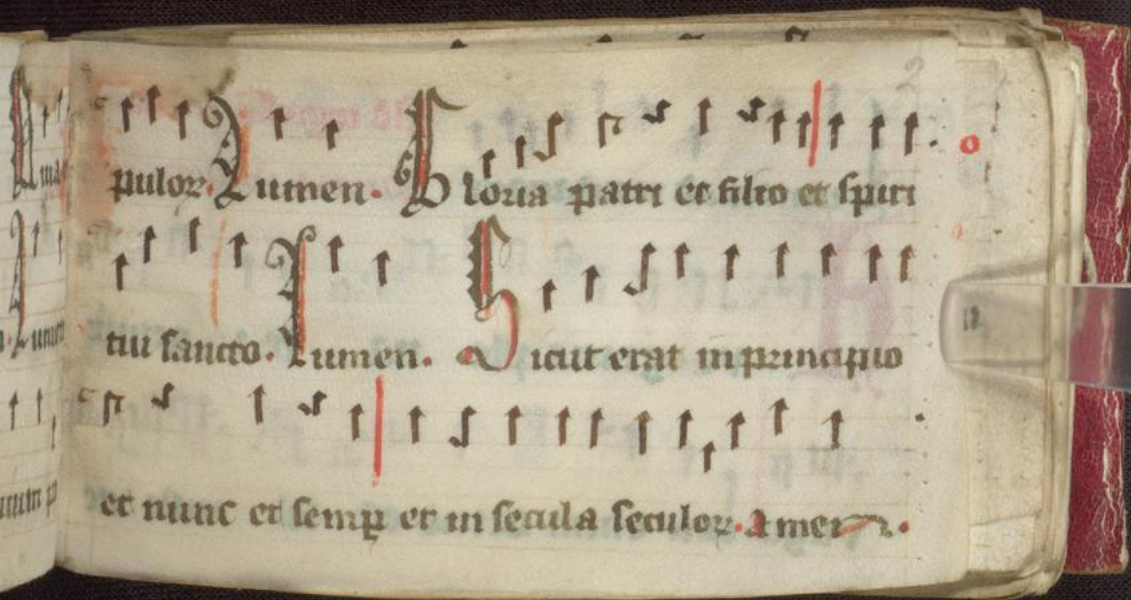 pulor. Lumen. Gloria patri et filio et spiri
tui sancto. Lumen. Sicut erat in principio
et nunc et semp et in secula seculor. Amen.